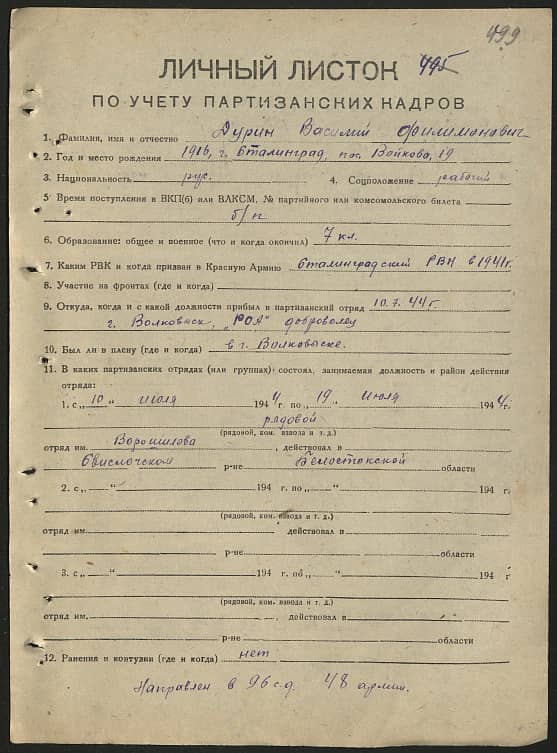 499
ЛИЧНЫЙ ЛИСТОК 495
ПО УЧЕТУ ПАРТИЗАНСКИХ КАДРОВ
1. Фамилия, имя и отчество Дурин Василий Филимонович
2. Год и место рождения 1916, г. Сталинград, пос. Войкова, 19
3. Национальность рус. 4. Соцположение рабочий
5 Время поступления в ВКП(б) или ВЛКСМ, № партийного или комсомольского билета
б/п
6. Образование: общее и военное (что и когда окончил) 7 кл.
7. Каким РВК и когда призван в Красную Армию Сталинградский РВК в 1941г.
8. Участие на фронтах (где и когда)
9. Откуда, когда и с какой должности прибыл в партизанский отряд 10.7.44г.
г. Волковыск, "РОА" доброволец
10. Был ли в плену (где и когда) в г. Волковыске.
11. В каких партизанских отрядах (или группах) состоял, занимаемая должность и район действия
отряда:
1. с „10" июля 1944 г. по „19" июля 1944г.
рядовой
(рядовой, ком. взвода и т. д.)
отряд им. Ворошилова, действовал в
Свислочском р-не Белостокской области
2. с „ " 194 г. по „ " 194 г.
(рядовой, ком. взвода и т. д.)
отряд им. действовал в
р-не области
3. с „ " 194 г. по „ " 194 г
(рядовой, ком. взвода и т. д.)
отряд им. , действовал в
р-не области
12. Ранения и контузии (где и когда) нет
Направлен в 96 с.д. 48 армии.